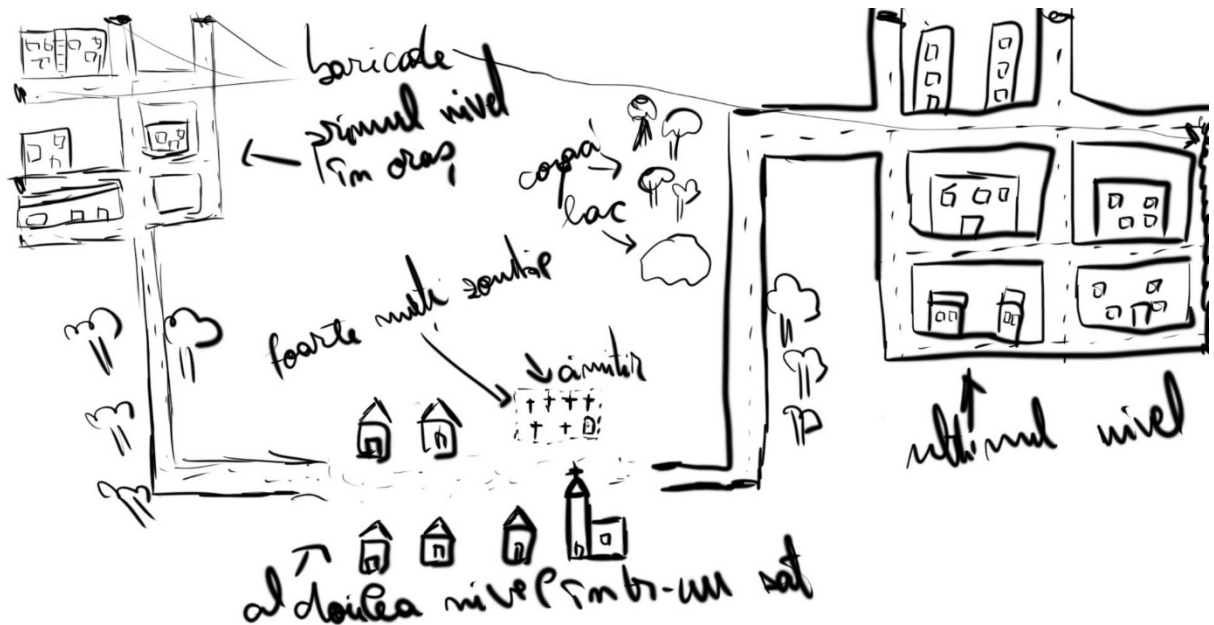 baricade
primul nivel
în oraș
copaci
lac
foarte mulți zombie
cimitir
ultimul nivel
al doilea nivel într-un sat